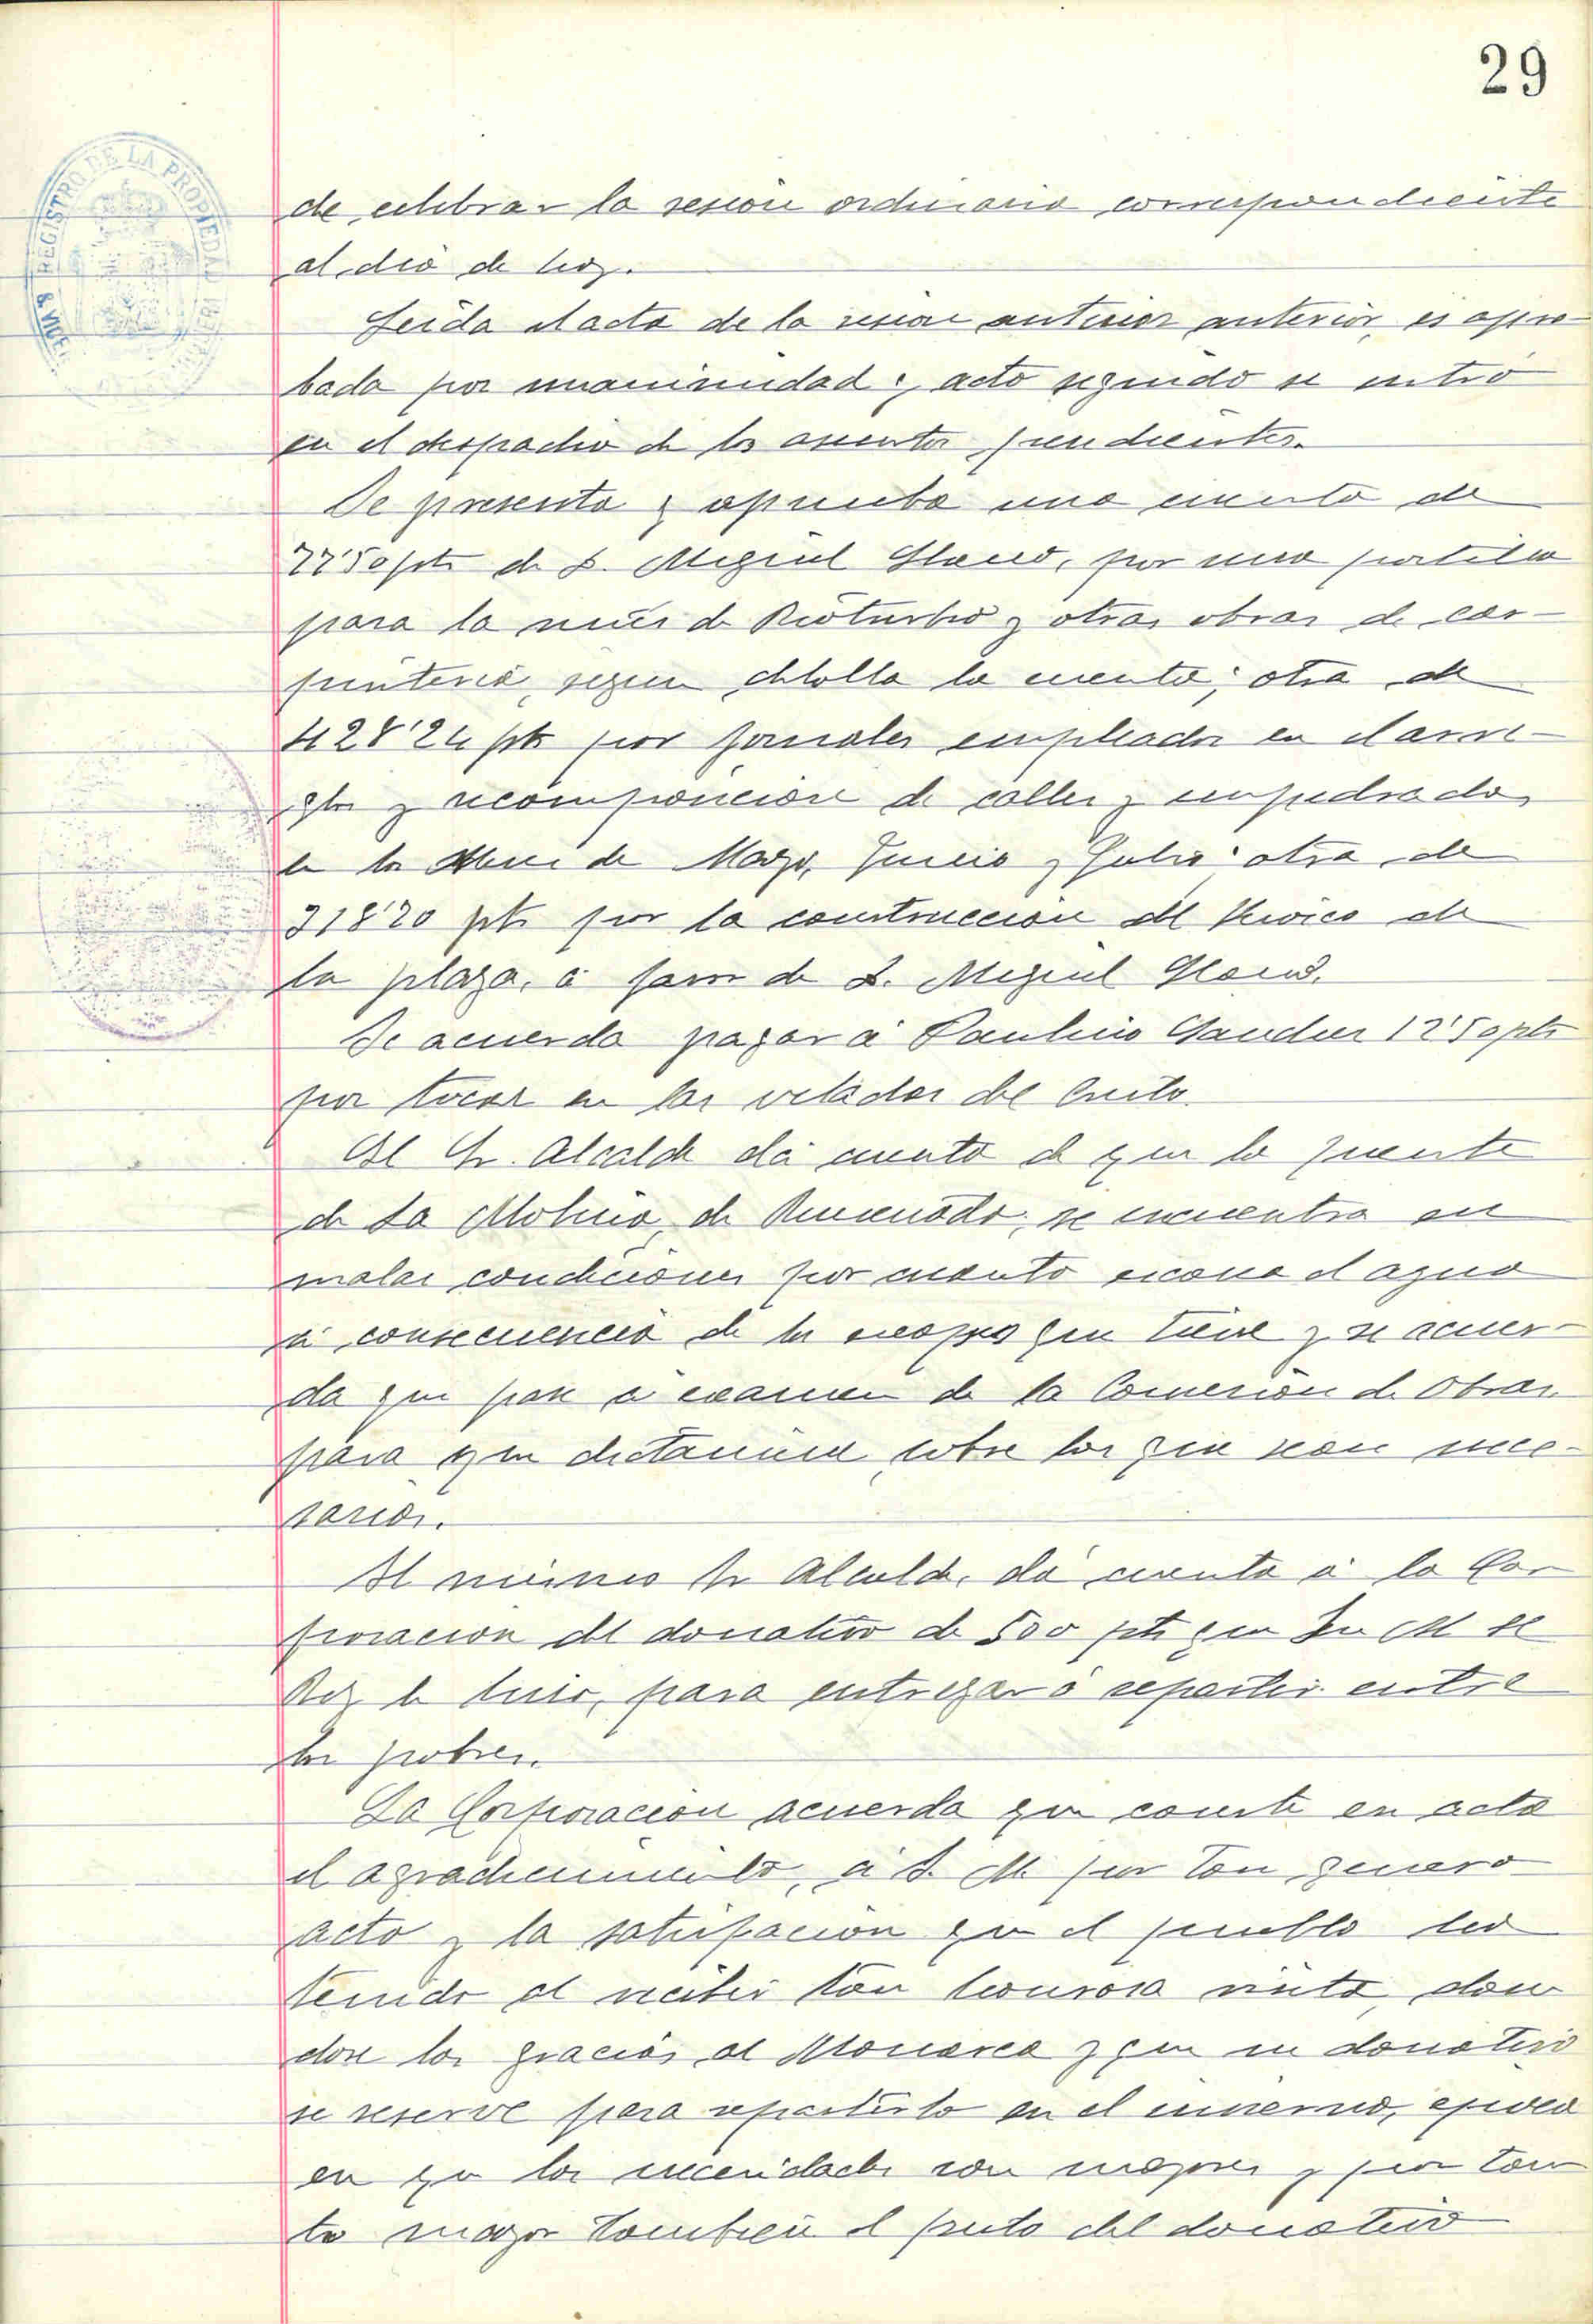 29
REGISTRO DE LA PROPIEDAD
de celebrar la sesion ordinaria correspondiente
al dia de hoy.
Leida el acta de la sesion anterior anterior, es apro-
bada por unanimidad y acto seguido se entró
en el despacho de los asuntos pendientes.
Se presenta y aprueba una cuenta de
77'50 pts de D. Miguel Llano, por una portilla
para la mies de Rioturbio y otras obras de car-
pinteria, segun detalla la cuenta; otra de
428'24 pts por jornales empleados en el arre-
glo y recomposicion de calles y empedrados
de los meses de Mayo, Junio y Julio; otra de
318'20 pts por la construccion del Kiosco de
la plaza, a favor de D. Miguel Llano.
Se acuerda pagar á Paulino 12'50 pts
por tocar en las veladas del Cristo.
El Sr. Alcalde dá cuenta de que la fuente
de La Molina, de se encuentra en
malas condiciones por cuanto escasea el agua
á consecuencia de los escapes que tiene y se acuer-
da que pase a examen de la Comision de Obras
para que dictamine sobre los que sean nece-
sarios.
El mismo Sr Alcalde, dá cuenta á la Cor
poracion del donativo de 500 pts que Su M el
Rey le hizo, para entregar ó repartir entre
los pobres.
La Corporacion acuerda que conste en acta
el agradecimiento, á S. M. por tan generoso
acto y la satisfacion que el pueblo ha
tenido al recibir tan honrosa visita, dan
dose las gracias al Monarca y que su donativo
se reserve para repartirlo en el invierno, epoca
en que las necesidades son mayores y por tan
to mayor tambien el fruto del donativo